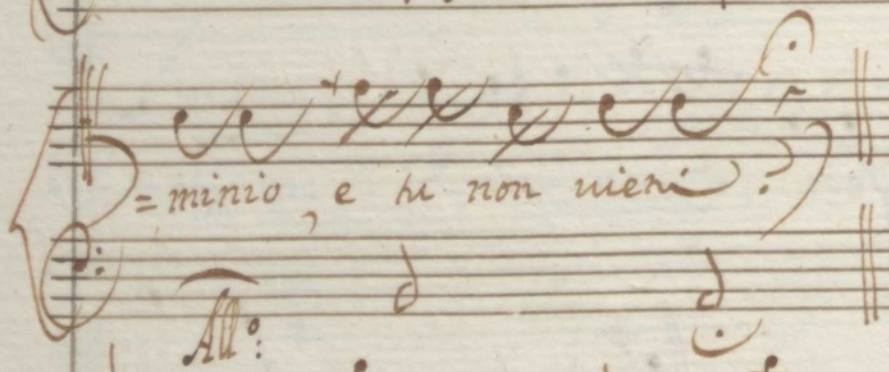 =minio, e tu non vieni?
All.º: